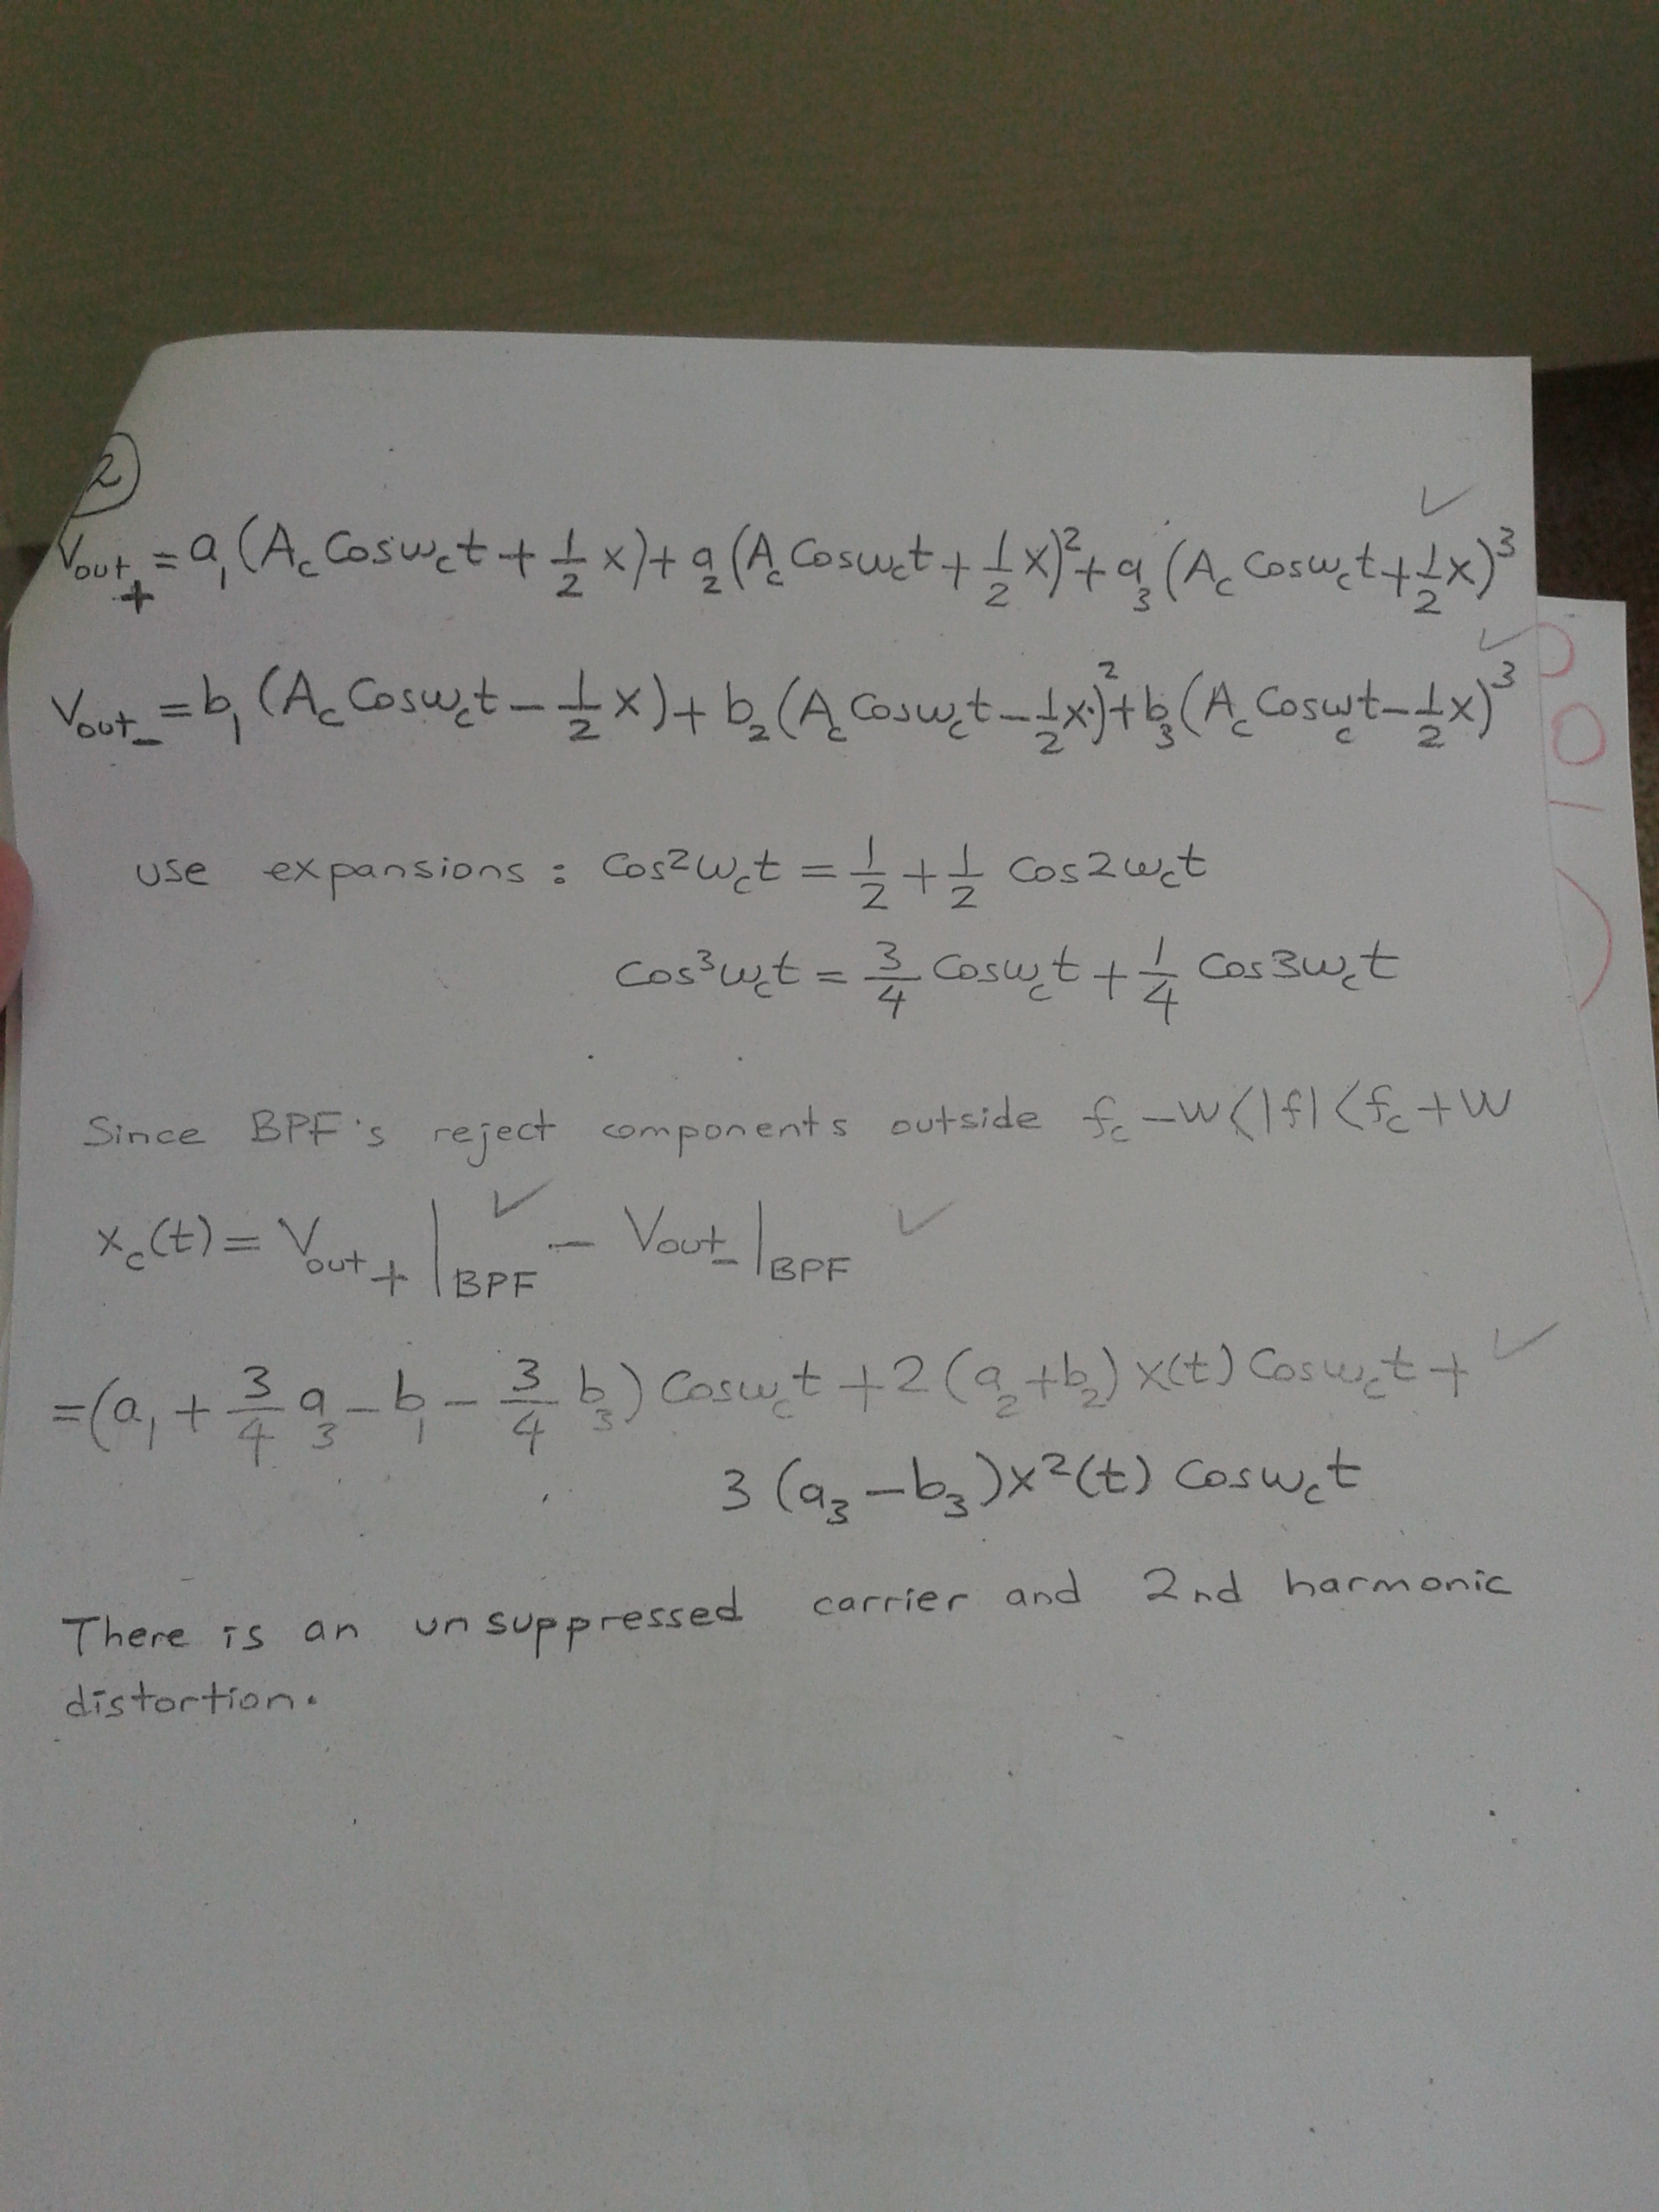 2
Vout+ = a₁(A_c Cosω_ct + 1/2 x) + a₂(A_c Cosω_ct + 1/2 x)² + a₃(A_c Cosω_ct + 1/2 x)³
Vout- = b₁(A_c Cosω_ct - 1/2 x) + b₂(A_c Cosω_ct - 1/2 x)² + b₃(A_c Cosω_ct - 1/2 x)³
use expansions : Cos²ω_ct = 1/2 + 1/2 Cos2ω_ct
Cos³ω_ct = 3/4 Cosω_ct + 1/4 Cos3ω_ct
Since BPF's reject components outside f_c - W < |f| < f_c + W
x_c(t) = Vout+ |BPF - Vout- |BPF
= (a₁ + 3/4 a₃ - b₁ - 3/4 b₃) Cosω_ct + 2(a₂ + b₂) x(t) Cosω_ct +
3(a₃ - b₃)x²(t) Cosω_ct
There is an unsuppressed carrier and 2nd harmonic
distortion.